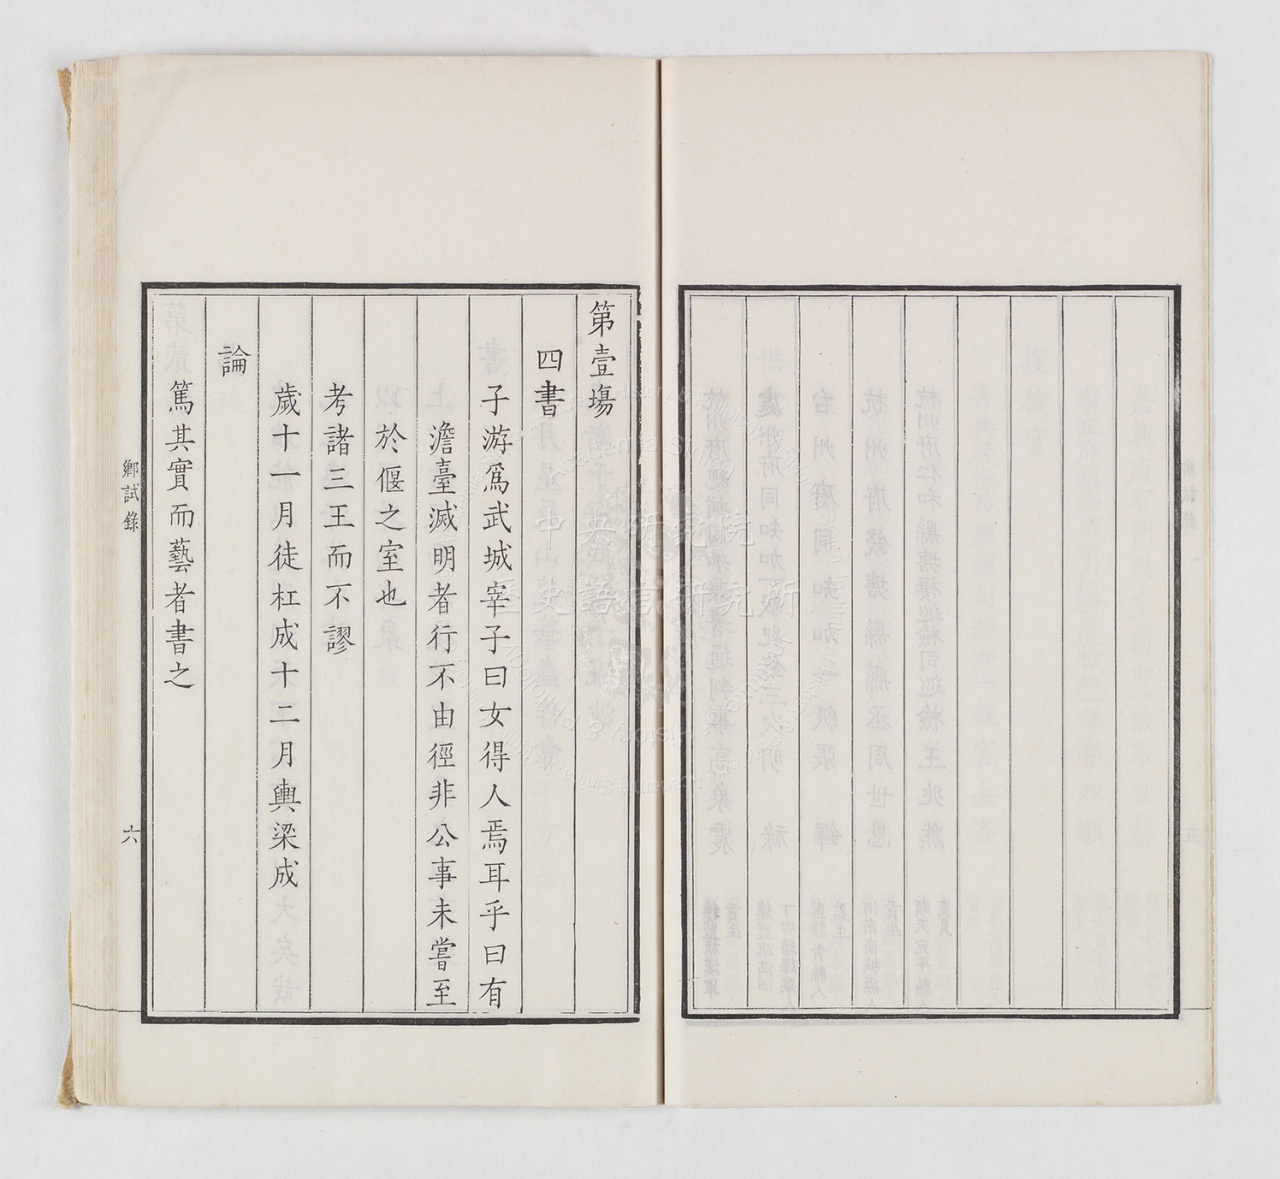 第壹塲
四書
子游爲武城宰子曰女得人焉耳乎曰有
澹臺滅明者行不由徑非公事未嘗至
於偃之室也
考諸三王而不謬
歲十一月徒杠成十二月輿梁成
論
篤其實而藝者書之
鄉試錄
六
中央研究院
歷史語言研究所